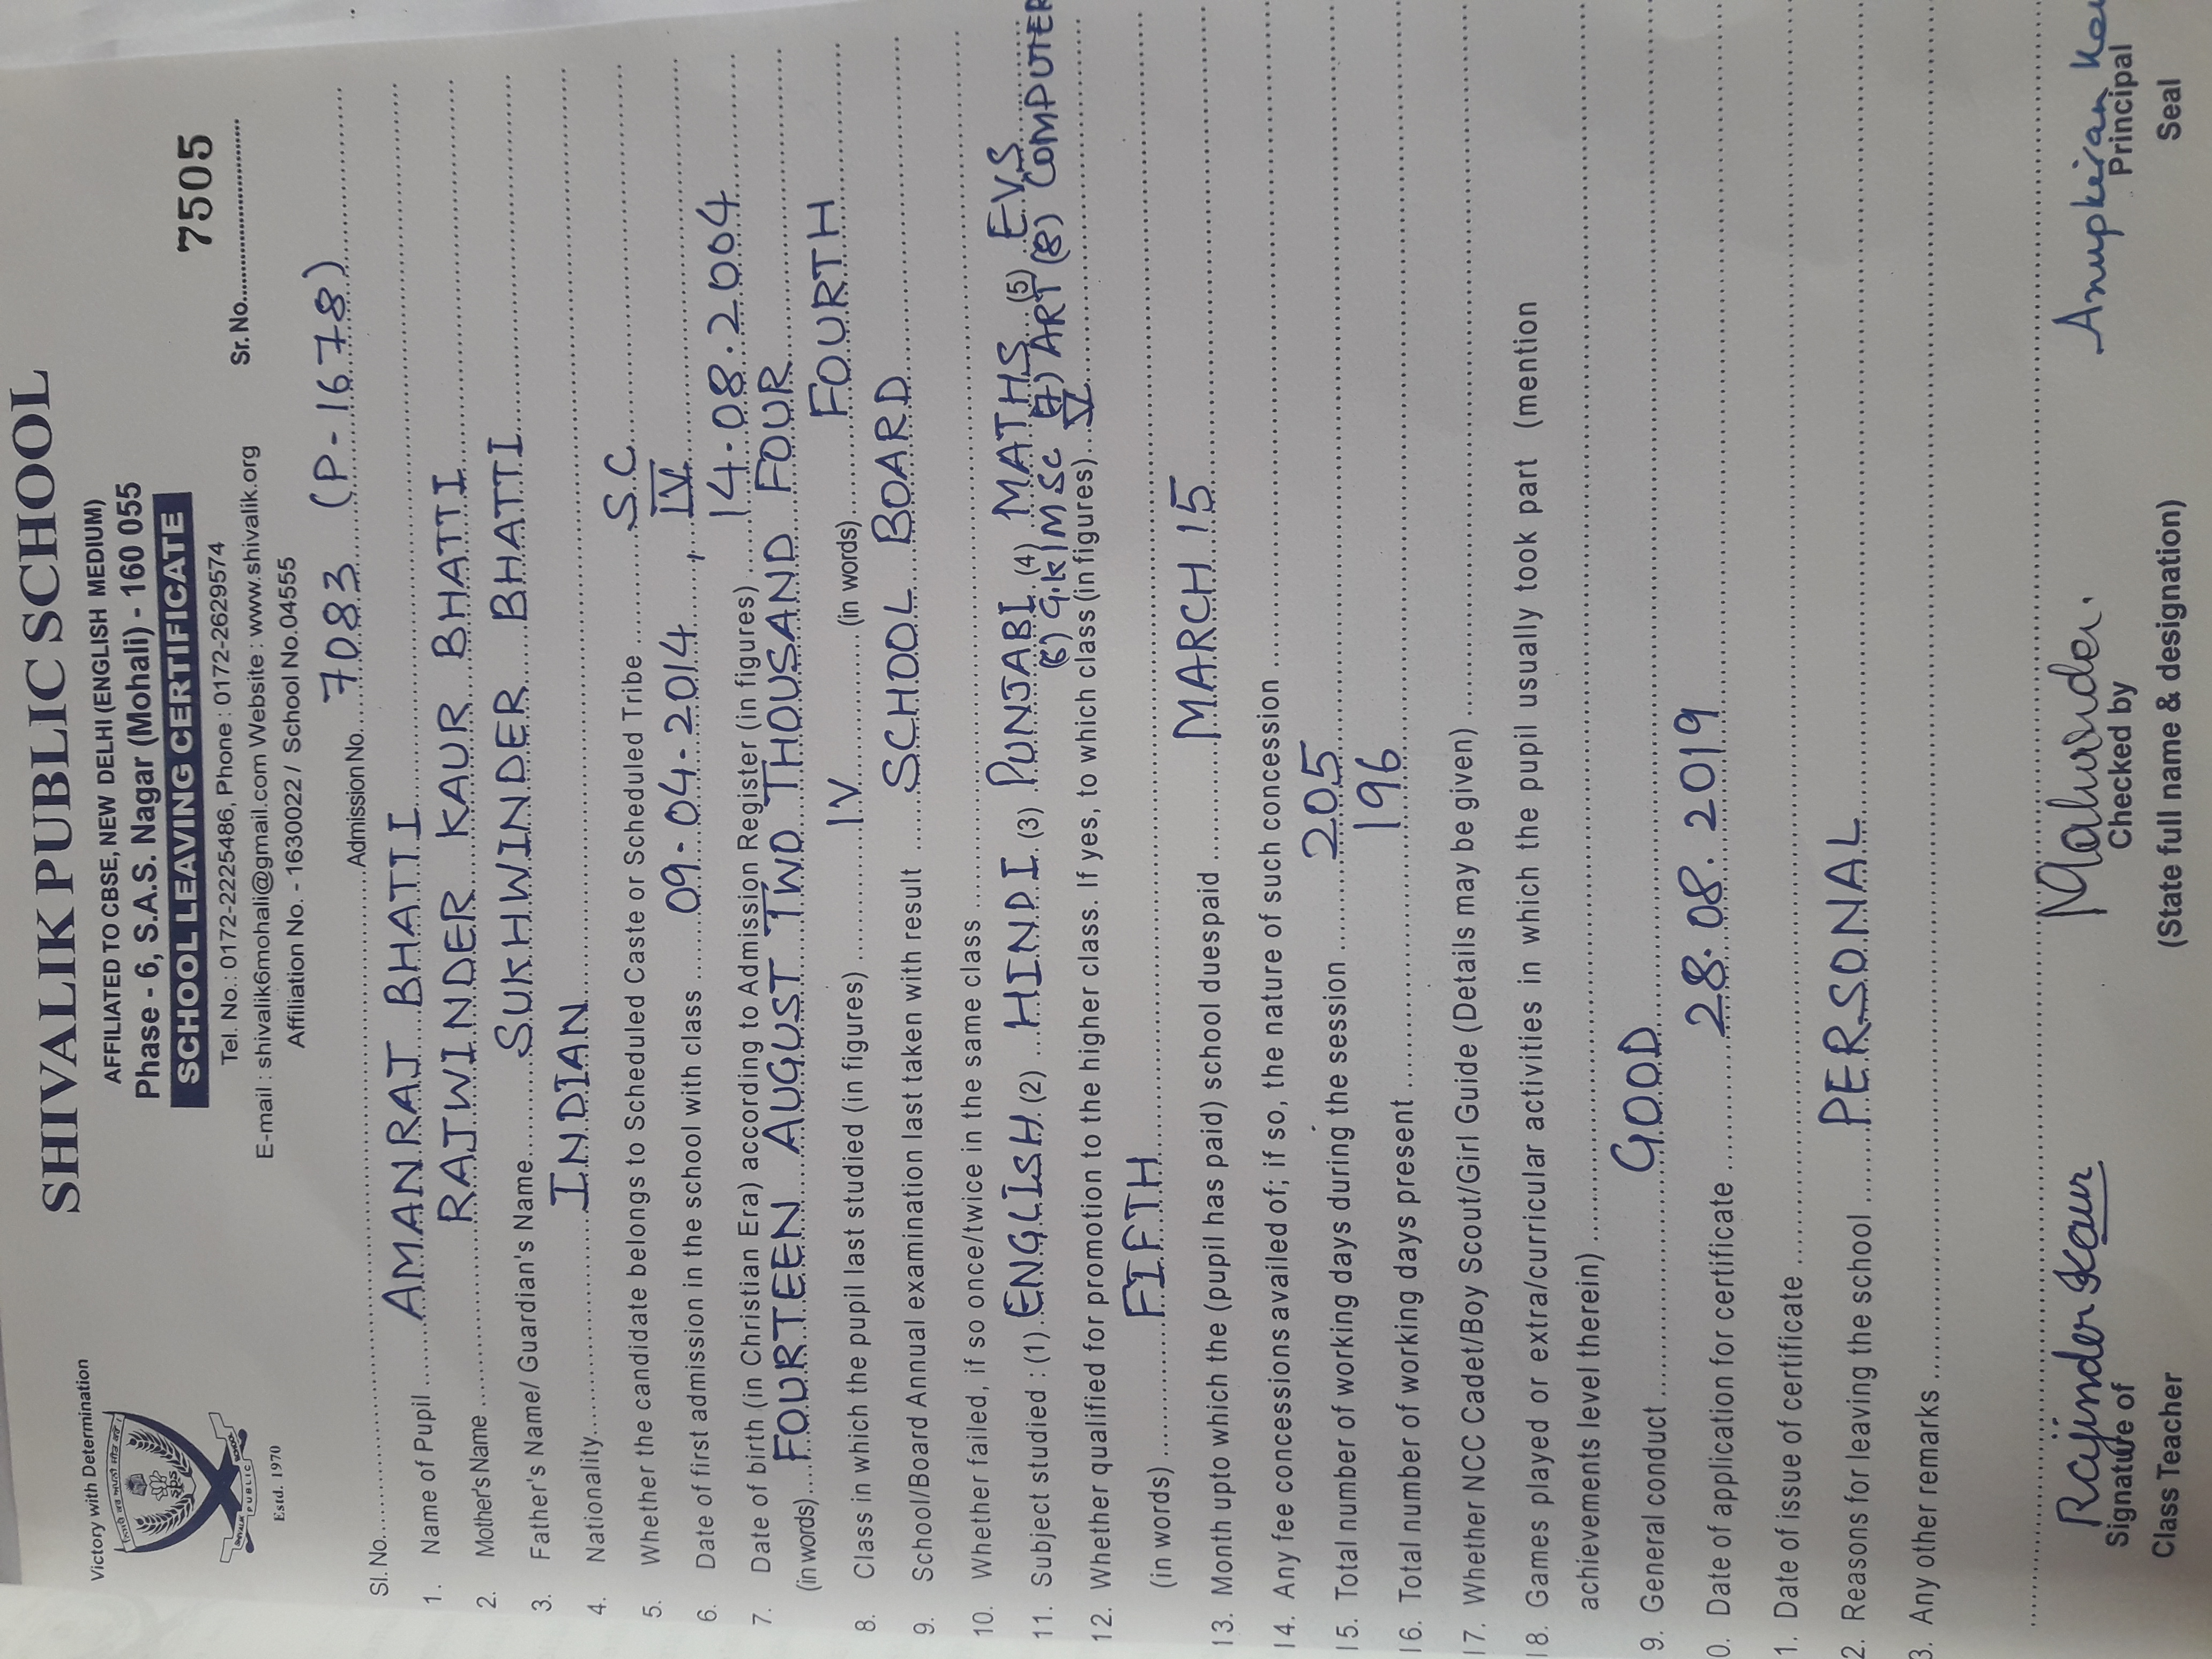 Victory with Determination
SHIVALIK PUBLIC SCHOOL
AFFILIATED TO CBSE, NEW DELHI (ENGLISH MEDIUM)
Phase - 6, S.A.S. Nagar (Mohali) - 160 055
SCHOOL LEAVING CERTIFICATE
7505
Tel. No.: 0172-2225486, Phone : 0172-2629574
Sr. No.
E-mail : shivalik6mohali@gmail.com Website : www.shivalik.org
Affiliation No. - 1630022 / School No.04555
SPS
SHIVALIK PUBLIC SCHOOL
Estd. 1970
Sl. No. Admission No. 7083 (P-1678)
1. Name of Pupil AMANRAJ BHATTI
2. Mother's Name RAJWINDER KAUR BHATTI
3. Father's Name/ Guardian's Name SUKHWINDER BHATTI
4. Nationality INDIAN
5. Whether the candidate belongs to Scheduled Caste or Scheduled Tribe S.C
6. Date of first admission in the school with class 09-04-2014, IV
7. Date of birth (in Christian Era) according to Admission Register (in figures) 14-08-2004
(in words) FOURTEEN AUGUST TWO THOUSAND FOUR
8. Class in which the pupil last studied (in figures) IV (in words) FOURTH
9. School/Board Annual examination last taken with result SCHOOL BOARD
10. Whether failed, if so once/twice in the same class
11. Subject studied : (1) ENGLISH (2) HINDI (3) PUNJABI (4) MATHS (5) EVS
(6) G.K/MSC (7) ART (8) COMPUTER
12. Whether qualified for promotion to the higher class. If yes, to which class (in figures) V
(in words) FIFTH
13. Month upto which the (pupil has paid) school duespaid MARCH 15
14. Any fee concessions availed of; if so, the nature of such concession
15. Total number of working days during the session 205
16. Total number of working days present 196
17. Whether NCC Cadet/Boy Scout/Girl Guide (Details may be given)
18. Games played or extra/curricular activities in which the pupil usually took part (mention
achievements level therein)
9. General conduct GOOD
0. Date of application for certificate 28.08.2019
1. Date of issue of certificate
2. Reasons for leaving the school PERSONAL
3. Any other remarks
Rajinder Kaur
Anupkiran Kau
Signature of Checked by Principal
Class Teacher (State full name & designation) Seal